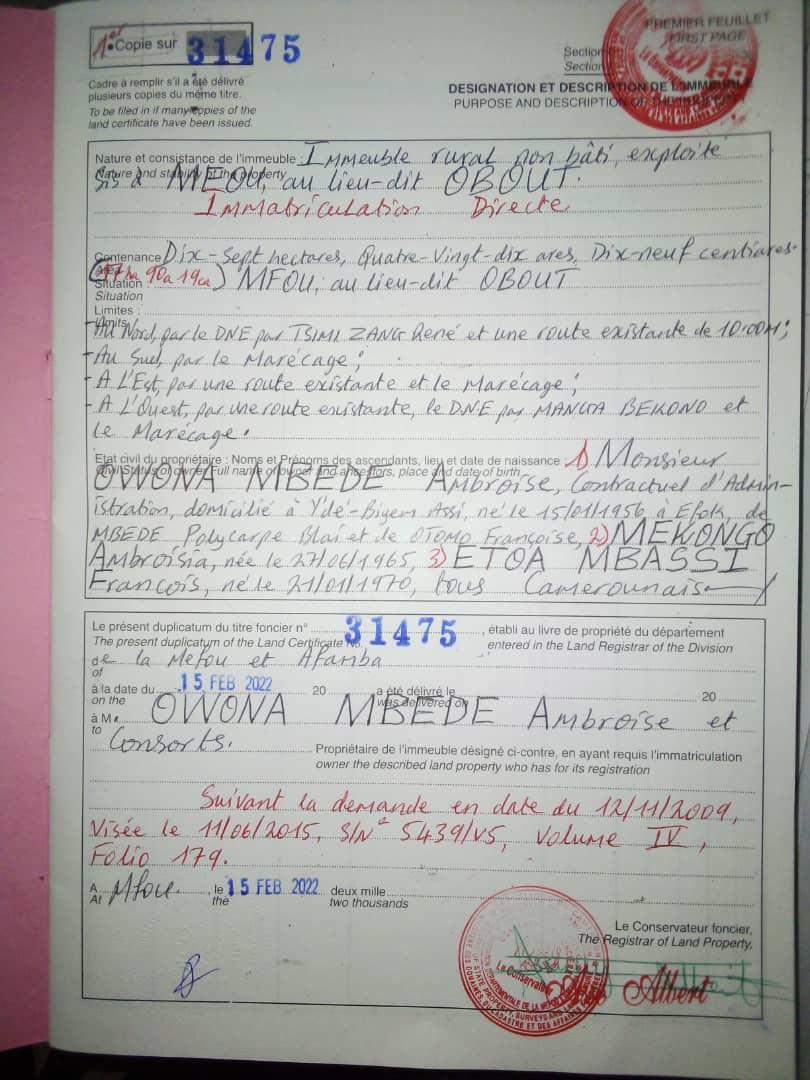 1er Copie sur 31475
PREMIER FEUILLET
FIRST PAGE
Section
Section
Cadre à remplir s'il a été délivré
plusieurs copies du même titre.
To be filed in if many copies of the
land certificate have been issued.
DESIGNATION ET DESCRIPTION DE L'IMMEUBLE
PURPOSE AND DESCRIPTION OF THE
Nature et consistance de l'immeuble : Immeuble rural non bâti, exploité
Nature and stability of the property
Sis à MFOU, au lieu-dit OBOUT.
Immatriculation Directe
Contenance Dix-Sept hectares, Quatre-Vingt-dix ares, Dix-neuf centiares.
(17ha 90a 19ca) MFOU, au lieu-dit OBOUT
Situation
Situation
Limites :
Limits
- Au Nord, par le DNE par TSIMI ZANG René et une route existante de 10.00M;
- Au Sud, par le Marécage;
- A L'Est, par une route existante et le Marécage;
- A L'Ouest, par une route existante, le DNE par MANGA BEKONO et
le Marécage.
Etat civil du propriétaire : Noms et Prénoms des ascendants, lieu et date de naissance 1) Monsieur
Civil Status of owner Full name of owner and ancestors, place and date of birth
OWONA MBEDE Ambroise, Contractuel d'Admin-
istration, domicilié à Y'dé-Biyem Assi, né le 15/01/1956 à Efok, de
MBEDE Polycarpe Blai et de OTOMO Françoise, 2) MEKONGO
Ambroisia, née le 27/06/1965, 3) ETOA MBASSI
François, né le 21/01/1970, tous Camerounais
Le présent duplicatum du titre foncier n° 31475, établi au livre de propriété du département
The present duplicatum of the Land Certificate No. entered in the Land Registrar of the Division
de la Mefou et Afamba
of
à la date du 15 FEB 2022 20 a été délivré le 20
on the was delivered on
à M. OWONA MBEDE Ambroise et
to
Consorts. Propriétaire de l'immeuble désigné ci-contre, en ayant requis l'immatriculation
owner the described land property who has for its registration
Suivant la demande en date du 12/11/2009,
Visée le 11/06/2015, S/N° 5439/V5, Volume IV,
Folio 179.
A Mfou. , le 15 FEB 2022 deux mille
At the two thousands
Le Conservateur foncier,
The Registrar of Land Property,
Albert